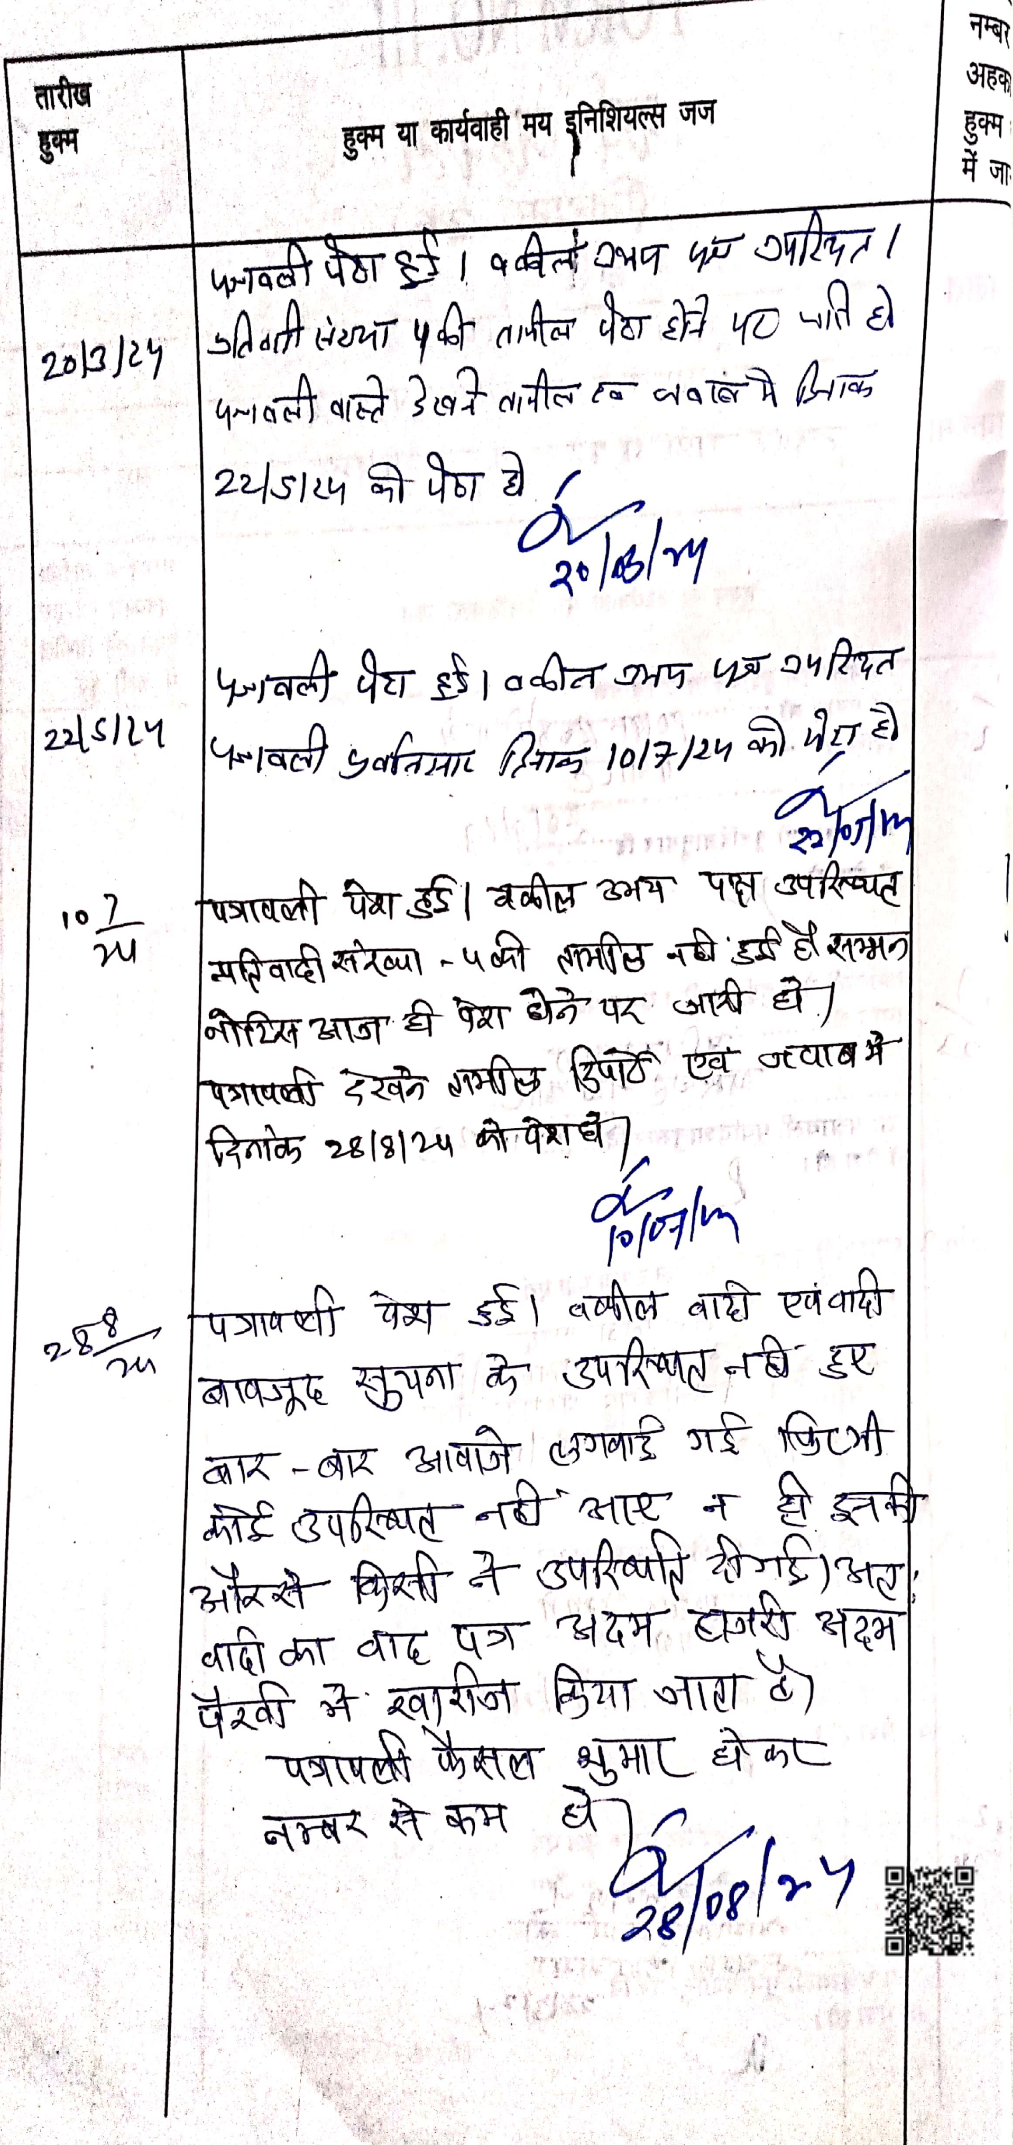 नम्बर
अहक
हुक्म
में जा
तारीख
हुक्म
हुक्म या कार्यवाही मय इनिशियल्स जज
पत्रावली पेश हुई। वकील उभय पक्ष उपस्थित।
20/3/24
संख्या 4 की तामील पेश होने पर जारी हो
पत्रावली वास्ते देखने तामील एवं जवाब में दिनांक
22/5/24 को पेश हो
20/03/24
पत्रावली पेश हुई। वकील उभय पक्ष उपस्थित
22/5/24
पत्रावली पूर्वानुसार दिनांक 10/7/24 को पेश हो
22/05/24
10 7/24
पत्रावली पेश हुई। वकील उभय पक्ष उपस्थित
प्रतिवादी संख्या - 4 की तामील नही हुई है सम्मन
नोटिस आज ही पेश होने पर जारी हो।
पत्रावली देखने तामील रिपोर्ट एवं जवाब में
दिनांक 28/8/24 को पेश हो।
10/07/24
28 8/24
पत्रावली पेश हुई। वकील वादी एवं वादी
बावजूद सुचना के उपस्थित नही हुए
बार - बार आवाजे लगवाई गई फिर भी
कोई उपस्थित नही आए न ही इनकी
और से किसी ने उपस्थिति दी गई। अतः
वादी का वाद पत्र अदम हाजरी अदम
पैरवी में खारीज किया जाता है।
पत्रावली फैसल शुमार होकर
नम्बर से कम हो।
28/08/24